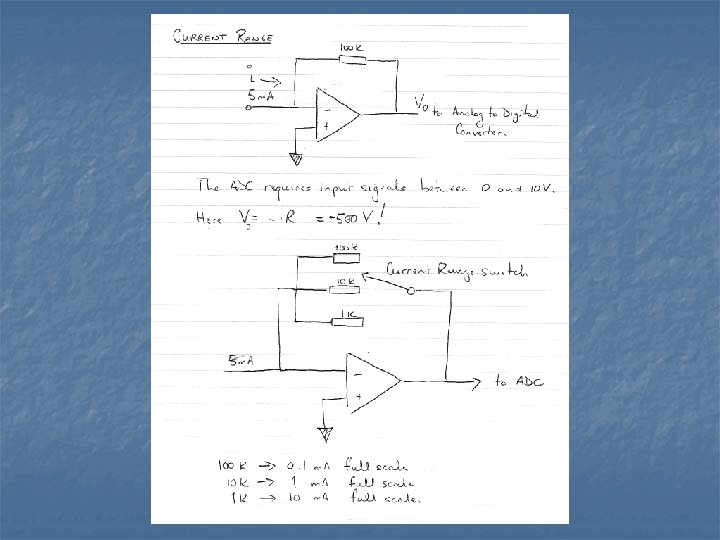 CURRENT RANGE
100K
i
5mA
-
+
Vo to Analog to Digital
Converter.
The ADC requires input signals between 0 and 10V.
Here Vo = -iR = -500V!
100K
Current Range switch
10K
1K
5mA
-
+
to ADC
100K → 0.1 mA full scale
10K → 1 mA full scale
1K → 10 mA full scale.